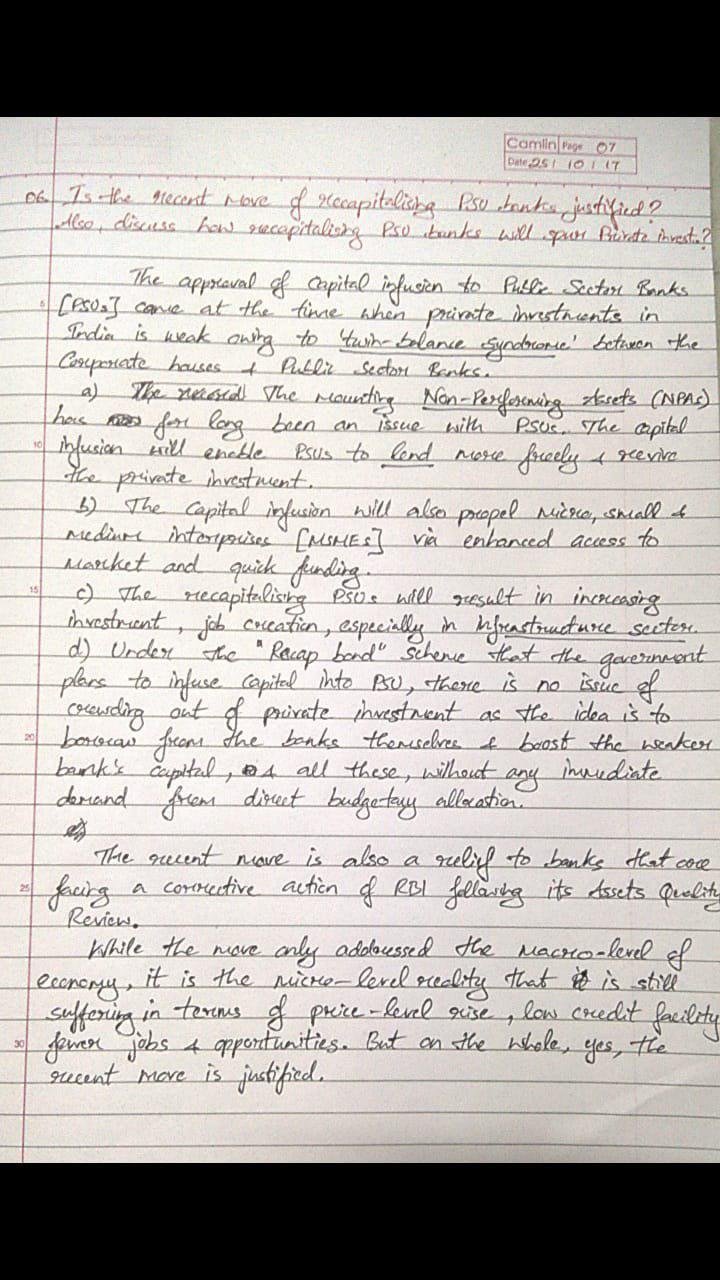 Camlin Page 07
Date 25 / 10 / 17
06. Is the recent move of recapitalising PSU banks justified?
Also, discuss how recapitalising PSU banks will spur Private invest.?
The approval of capital infusion to Public Sector Banks
5 [PSUs] came at the time when private investments in
India is weak owing to 'twin-balance syndrome' between the
Corporate houses & Public Sector Banks.
a) The mounting Non-Performing Assets (NPAs)
has for long been an issue with PSUs. The capital
10 infusion will enable PSUs to lend more freely & revive
the private investment.
b) The capital infusion will also propel micro, small &
medium interprises [MSMEs] via enhanced access to
market and quick funding.
15 c) The recapitalising PSUs will result in increasing
investment, job creation, especially in Infrastructure sector.
d) Under the "Recap bond" scheme that the government
plans to infuse capital into PSU, there is no issue of
crowding out of private investment as the idea is to
20 borrow from the banks themselves & boost the weaker
bank's capital, & all these, without any immediate
demand from direct budgetary allocation.
The recent move is also a relief to banks that are
25 facing a corrective action of RBI following its Assets Quality
Review.
While the move only addressed the macro-level of
economy, it is the micro-level reality that is still
suffering in terms of price-level rise, low credit facility
30 fewer jobs & opportunities. But on the whole, yes, the
recent move is justified.